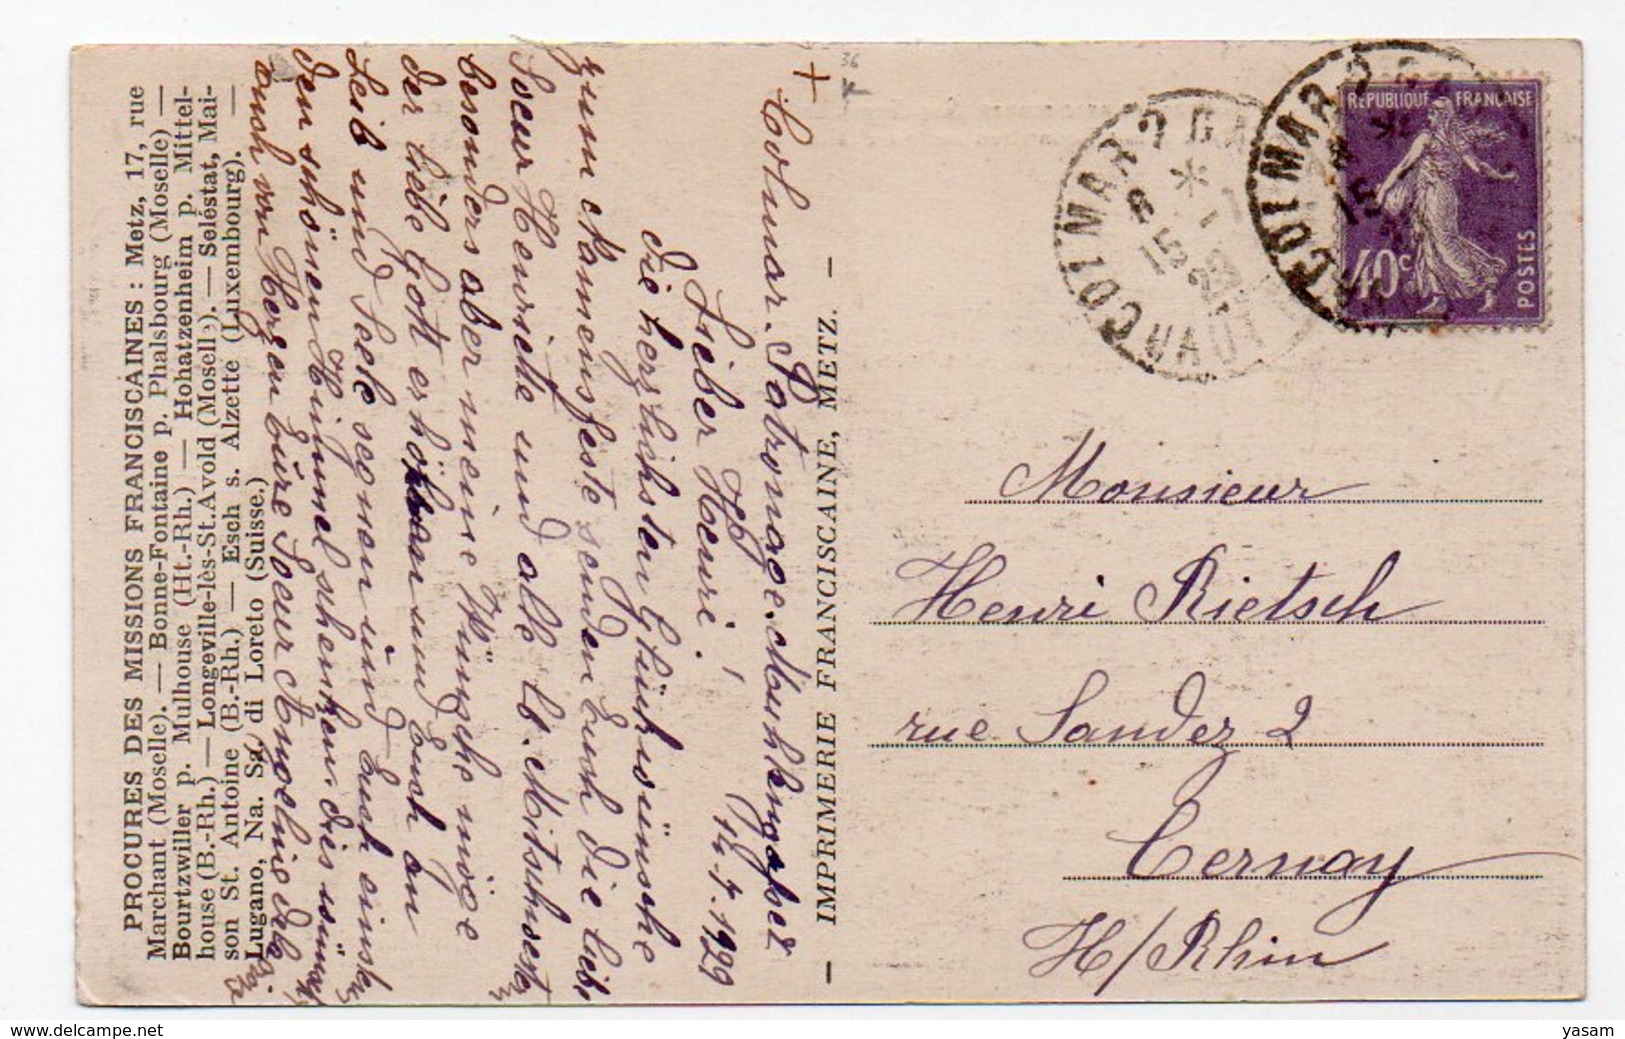 PROCURES DES MISSIONS FRANCISCAINES : Metz, 17, rue
Marchant (Moselle). — Bonne-Fontaine p. Phalsbourg (Moselle) —
Bourtzwiller p. Mulhouse (Ht.-Rh.) — Hohatzenheim p. Mittel-
house (B.-Rh.) — Longeville-lès-St.Avold (Moselle). — Seléstat, Mai-
son St. Antoine (B.-Rh.) — Esch s. Alzette (Luxembourg). —
Lugano, Na. Sa. di Loreto (Suisse.)
+
Colmar. Patronage.
14.7.1929
Lieber Henri!
Die herzlichsten Glückwünsche
zum Namensfeste senden Euch die liebe
Soeur Henrike und alle lb. Mitschwestern
besonders aber meine Wünsche möge
der liebe Gott erhören und Euch an
Leib und Seele segnen und Euch einst
den schönen Himmel schenken dies wünscht
auch von Herzen Eure Soeur
— IMPRIMERIE FRANCISCAINE, METZ. —
36
T
COLMAR
15
HAUT
COLMAR
15
RÉPUBLIQUE FRANÇAISE
40c
POSTES
Monsieur
Henri Rietsch
rue Sandez 2
Cernay
H/Rhin
delcampe.net
yasam